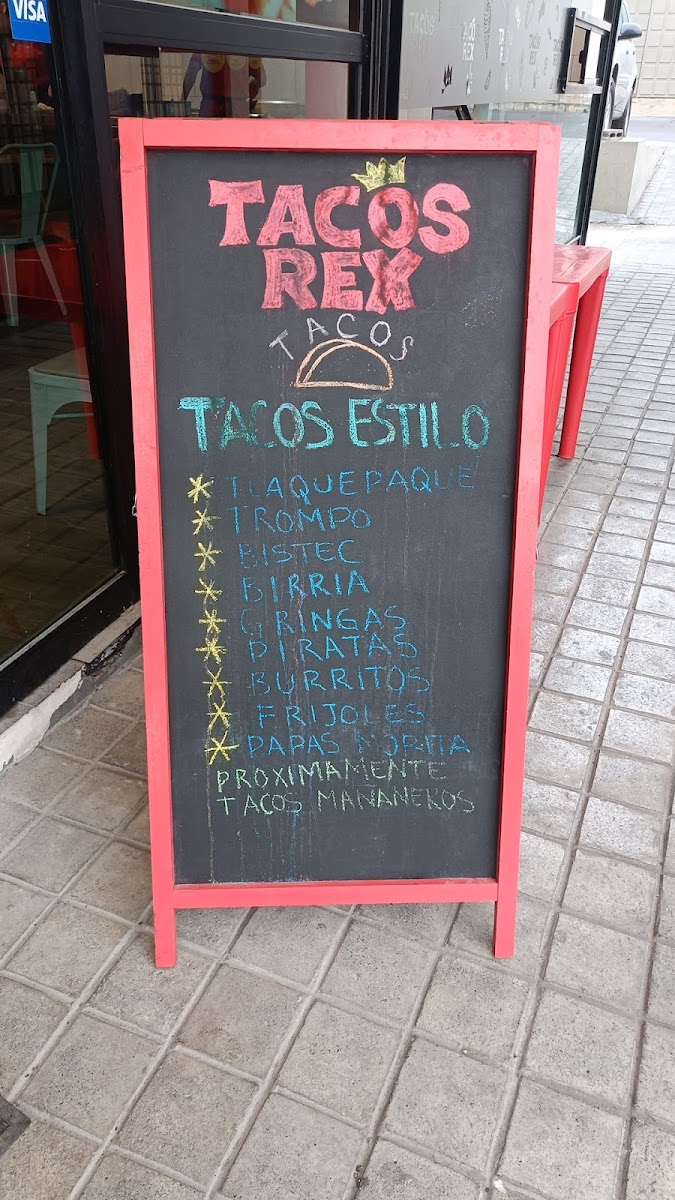 VISA
TACOS
REX
TACOS
TACOS ESTILO
* TLAQUEPAQUE
* TROMPO
* BISTEC
* BIRRIA
* GRINGAS
* PIRATAS
* BURRITOS
* FRIJOLES
* PAPAS MORITA
PROXIMAMENTE
TACOS MAÑANEROS
TACOS
REX